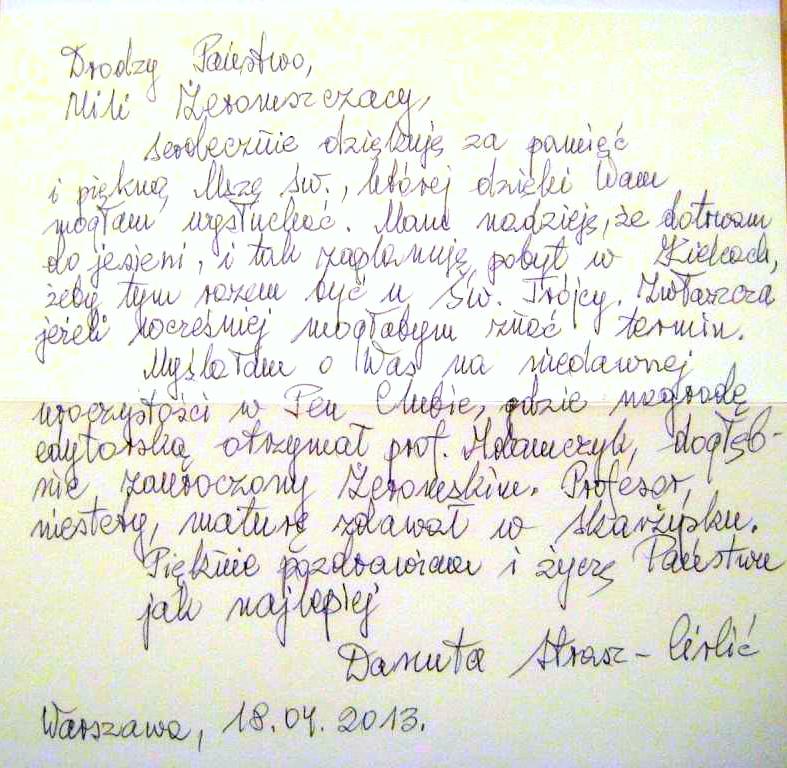 Drodzy Państwo,
Mili Żeromszczacy,
serdecznie dziękuję za pamięć
i piękną Mszę św., której dzięki Wam
mogłam wysłuchać. Mam nadzieję, że dotrwam
do jesieni, i tak zaplanuję pobyt w Kielcach,
żeby tym razem być u Św. Trójcy. Zwłaszcza
jeżeli wcześniej mogłabym znać termin.
Myślałam o Was na niedawnej
uroczystości w Pen Clubie, gdzie nagrodę
edytorską otrzymał prof. Adamczyk, dogłęb-
nie zauroczony Żeromskim. Profesor,
niestety, maturę zdawał w Skarżysku.
Pięknie pozdrawiam i życzę Państwu
jak najlepiej
Danuta Strasz-
Warszawa, 18.04.2013.